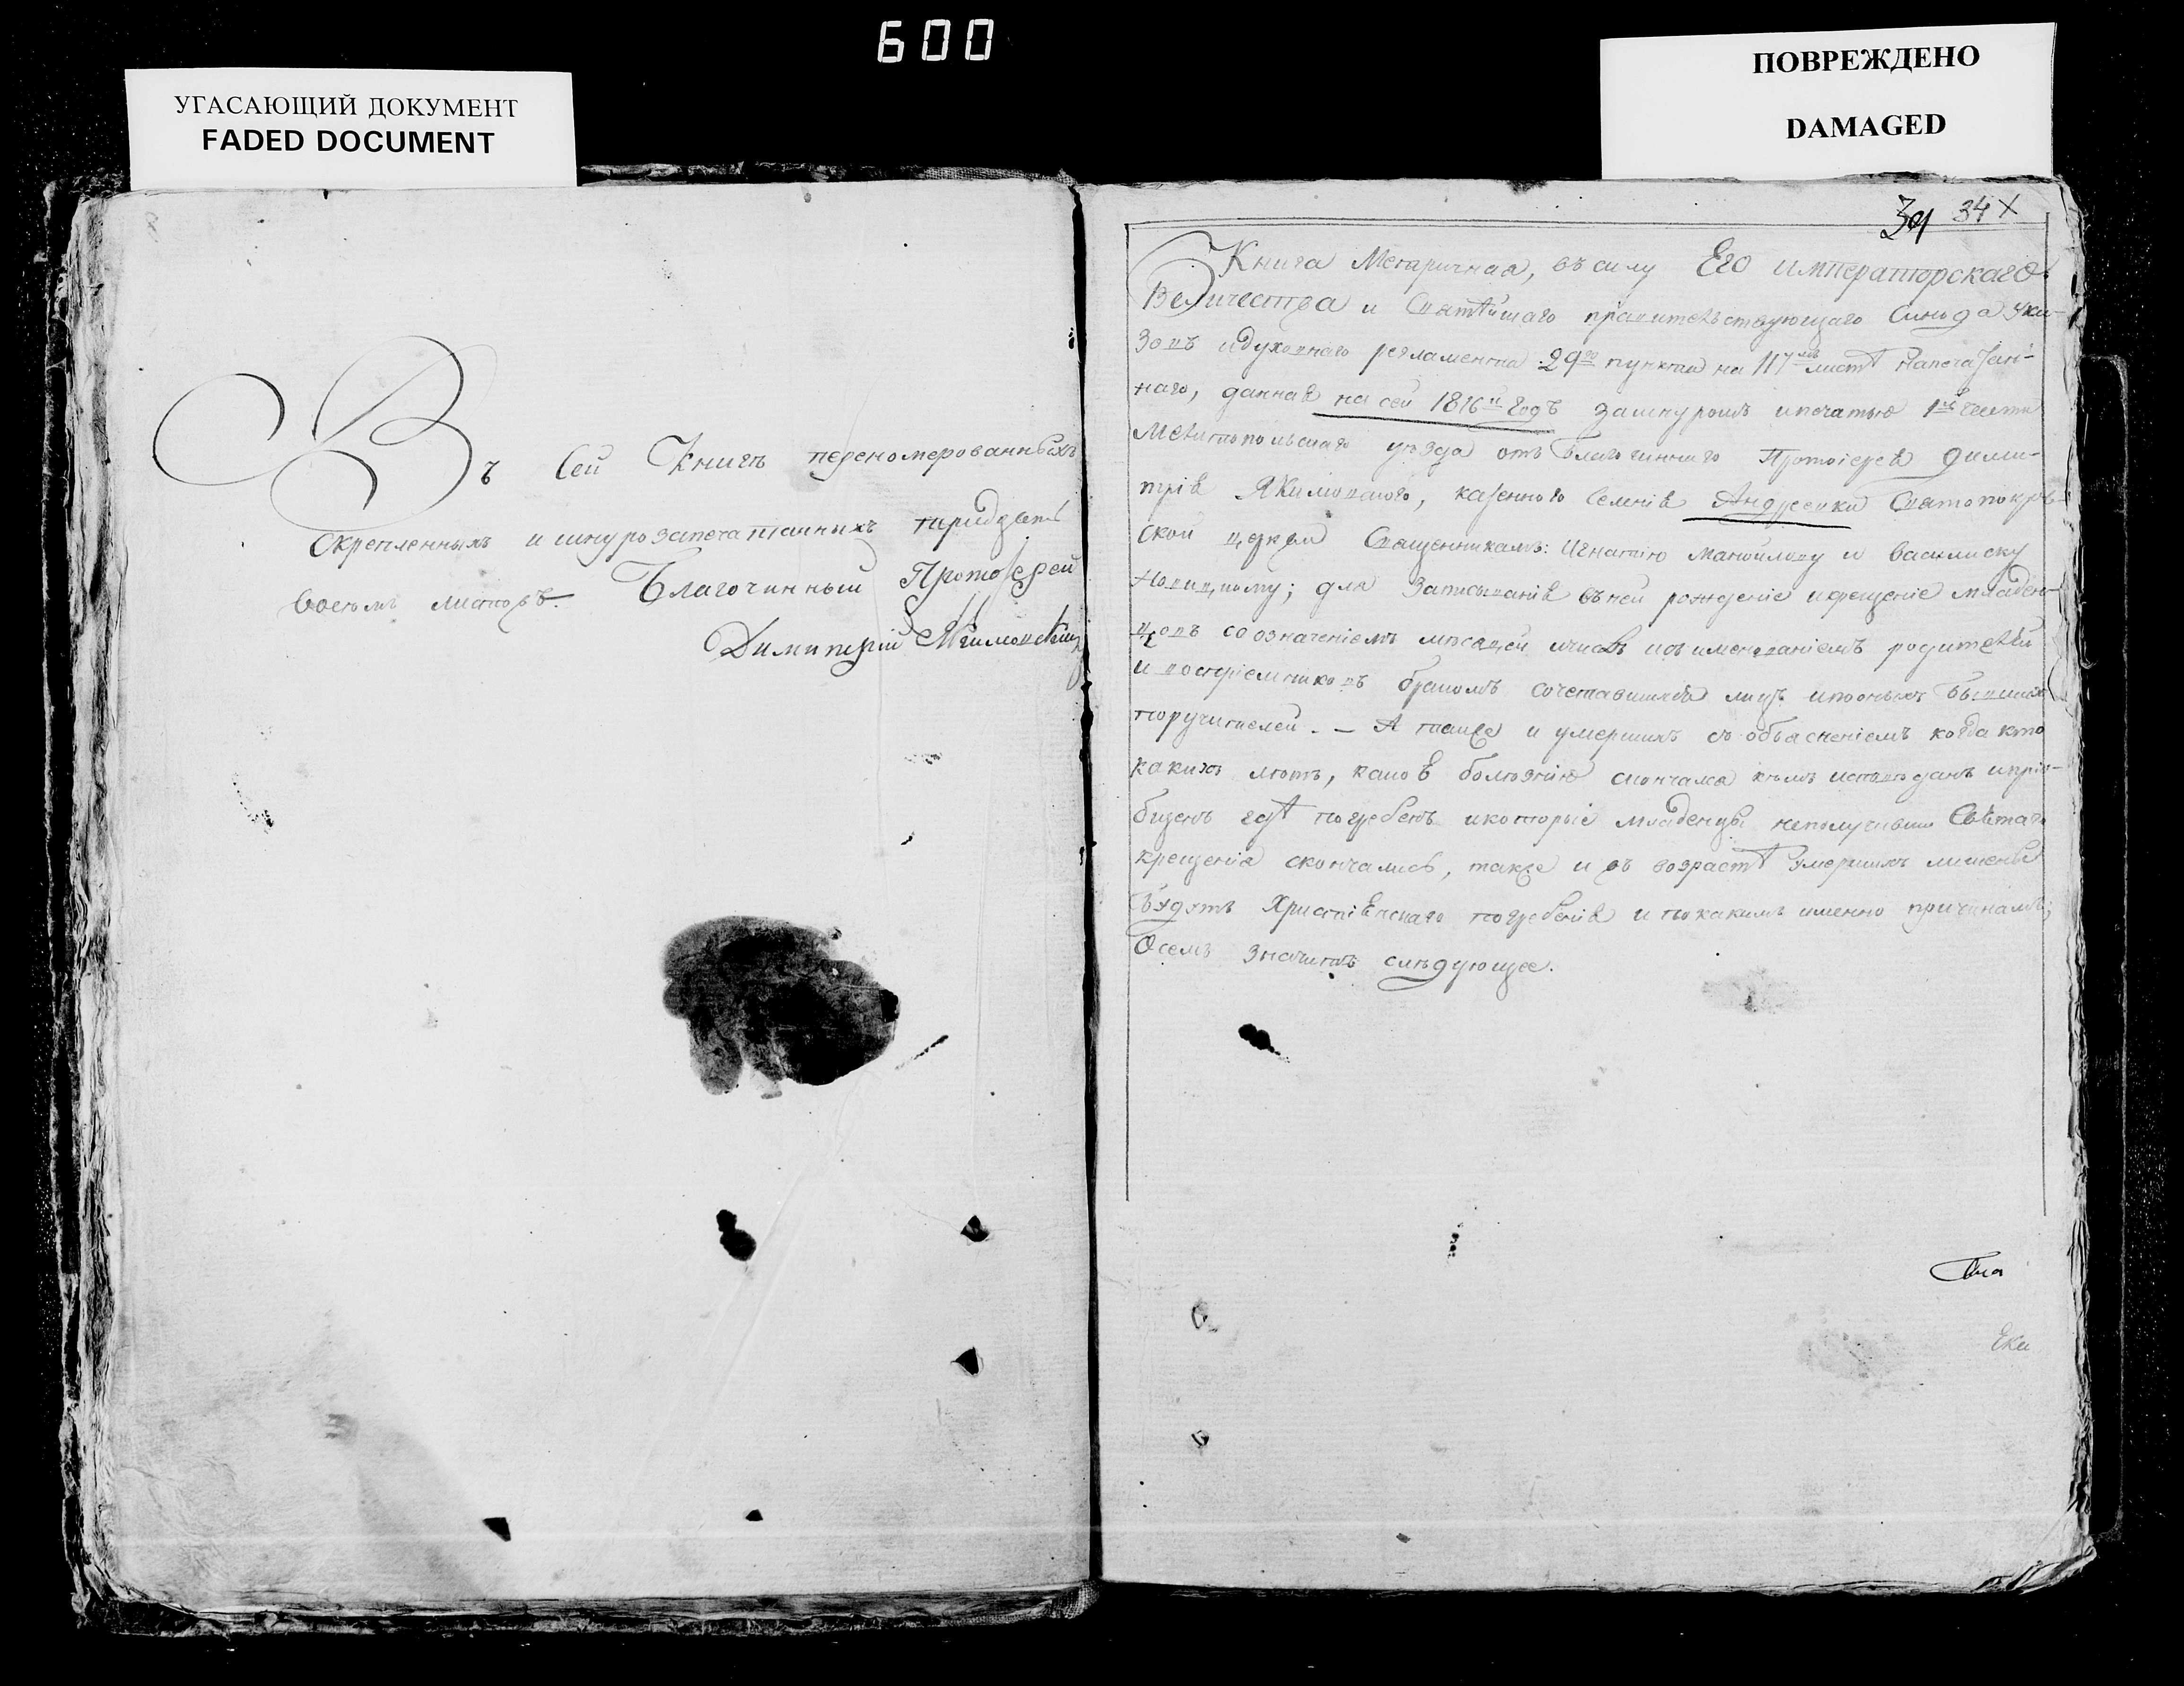 600
УГАСАЮЩИЙ ДОКУМЕНТ
FADED DOCUMENT
ПОВРЕЖДЕНО
DAMAGED
Въ Сей Книгѣ переномерованныхъ
Скрепленныхъ и шнурозапечатанныхъ тридцать
восемъ листовъ. Благочинный Протоіерей
Димитрій Якимовскій
34 X
Книга Метричная, въ силу Его императорскаго
Величества и Святѣйшаго правительствующаго Синода Ука-
зовъ и духовнаго регламента 29го пункта на 117мъ листѣ напечатан-
наго, данная на сей 1816й Годъ за шнуромъ и печатью 1й части
Мелитопольскаго уѣзда отъ Благочиннаго Протоіерея Дими-
трія Якимовскаго, казеннаго Селенія Андреевки Святопокров-
ской церкви Священникамъ: Игнатію Манойлову и Василиску
для Записыванія въ ней рожденіе и крещеніе младен-
цовъ со означеніемъ мѣсяцей и числъ и съ именованіемъ родителей
и воспріемниковъ бракомъ сочетавшихся лицъ и по оныхъ бывшихъ
поручителей. — А такъже и умершихъ съ объясненіемъ когда кто
какихъ лѣтъ, какою болѣзнію скончался кѣмъ исповѣданъ и пріо-
бщенъ гдѣ погребенъ и которые младенцы неполучивши Святаго
крещенія скончались, такъже и въ возрастѣ умершихъ лишены
будутъ Христіянскаго погребенія и по какимъ именно причинамъ;
О семъ значитъ слѣдующее.
Ека